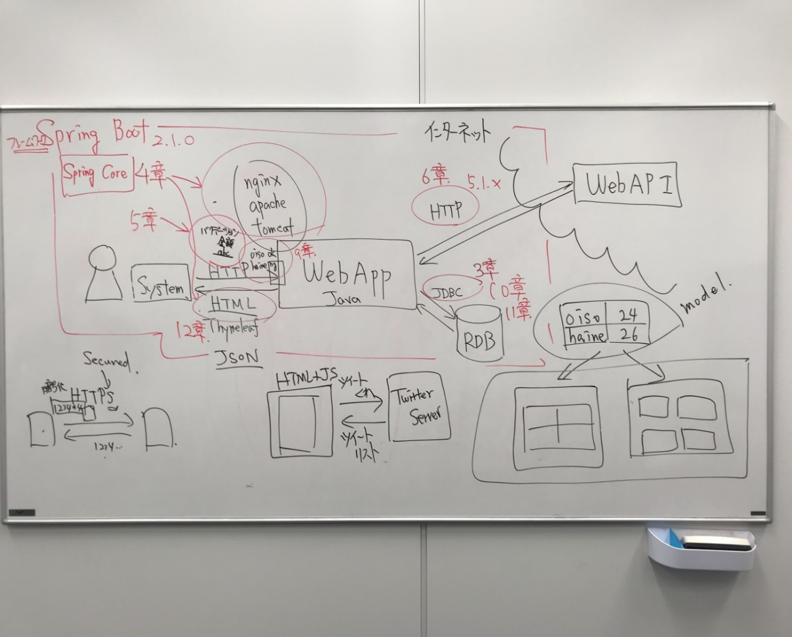 Spring Boot 2.1.0
フレームワーク
Spring Core
4章
5章
nginx
apache
tomcat
バリデーション
9章
HTTP
HTML
Thymeleaf
12章
JSON
System
WebApp
Java
インターネット
6章 5.1.x
HTTP
WebAPI
JDBC
3章
10章
11章
RDB
model.
oiso 24
haine 26
Secured.
暗号化
HTTPS
1234
1234...
HTML+JS
ツイート
くれ
ツイート
リスト
Twitter
Server